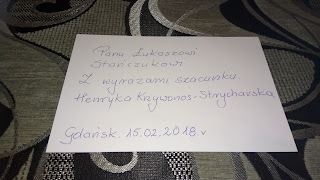 Panu Łukaszowi
Stańczukowi
Z wyrazami szacunku
Henryka Krzywonos-Strycharska
Gdańsk. 15.02.2018.r